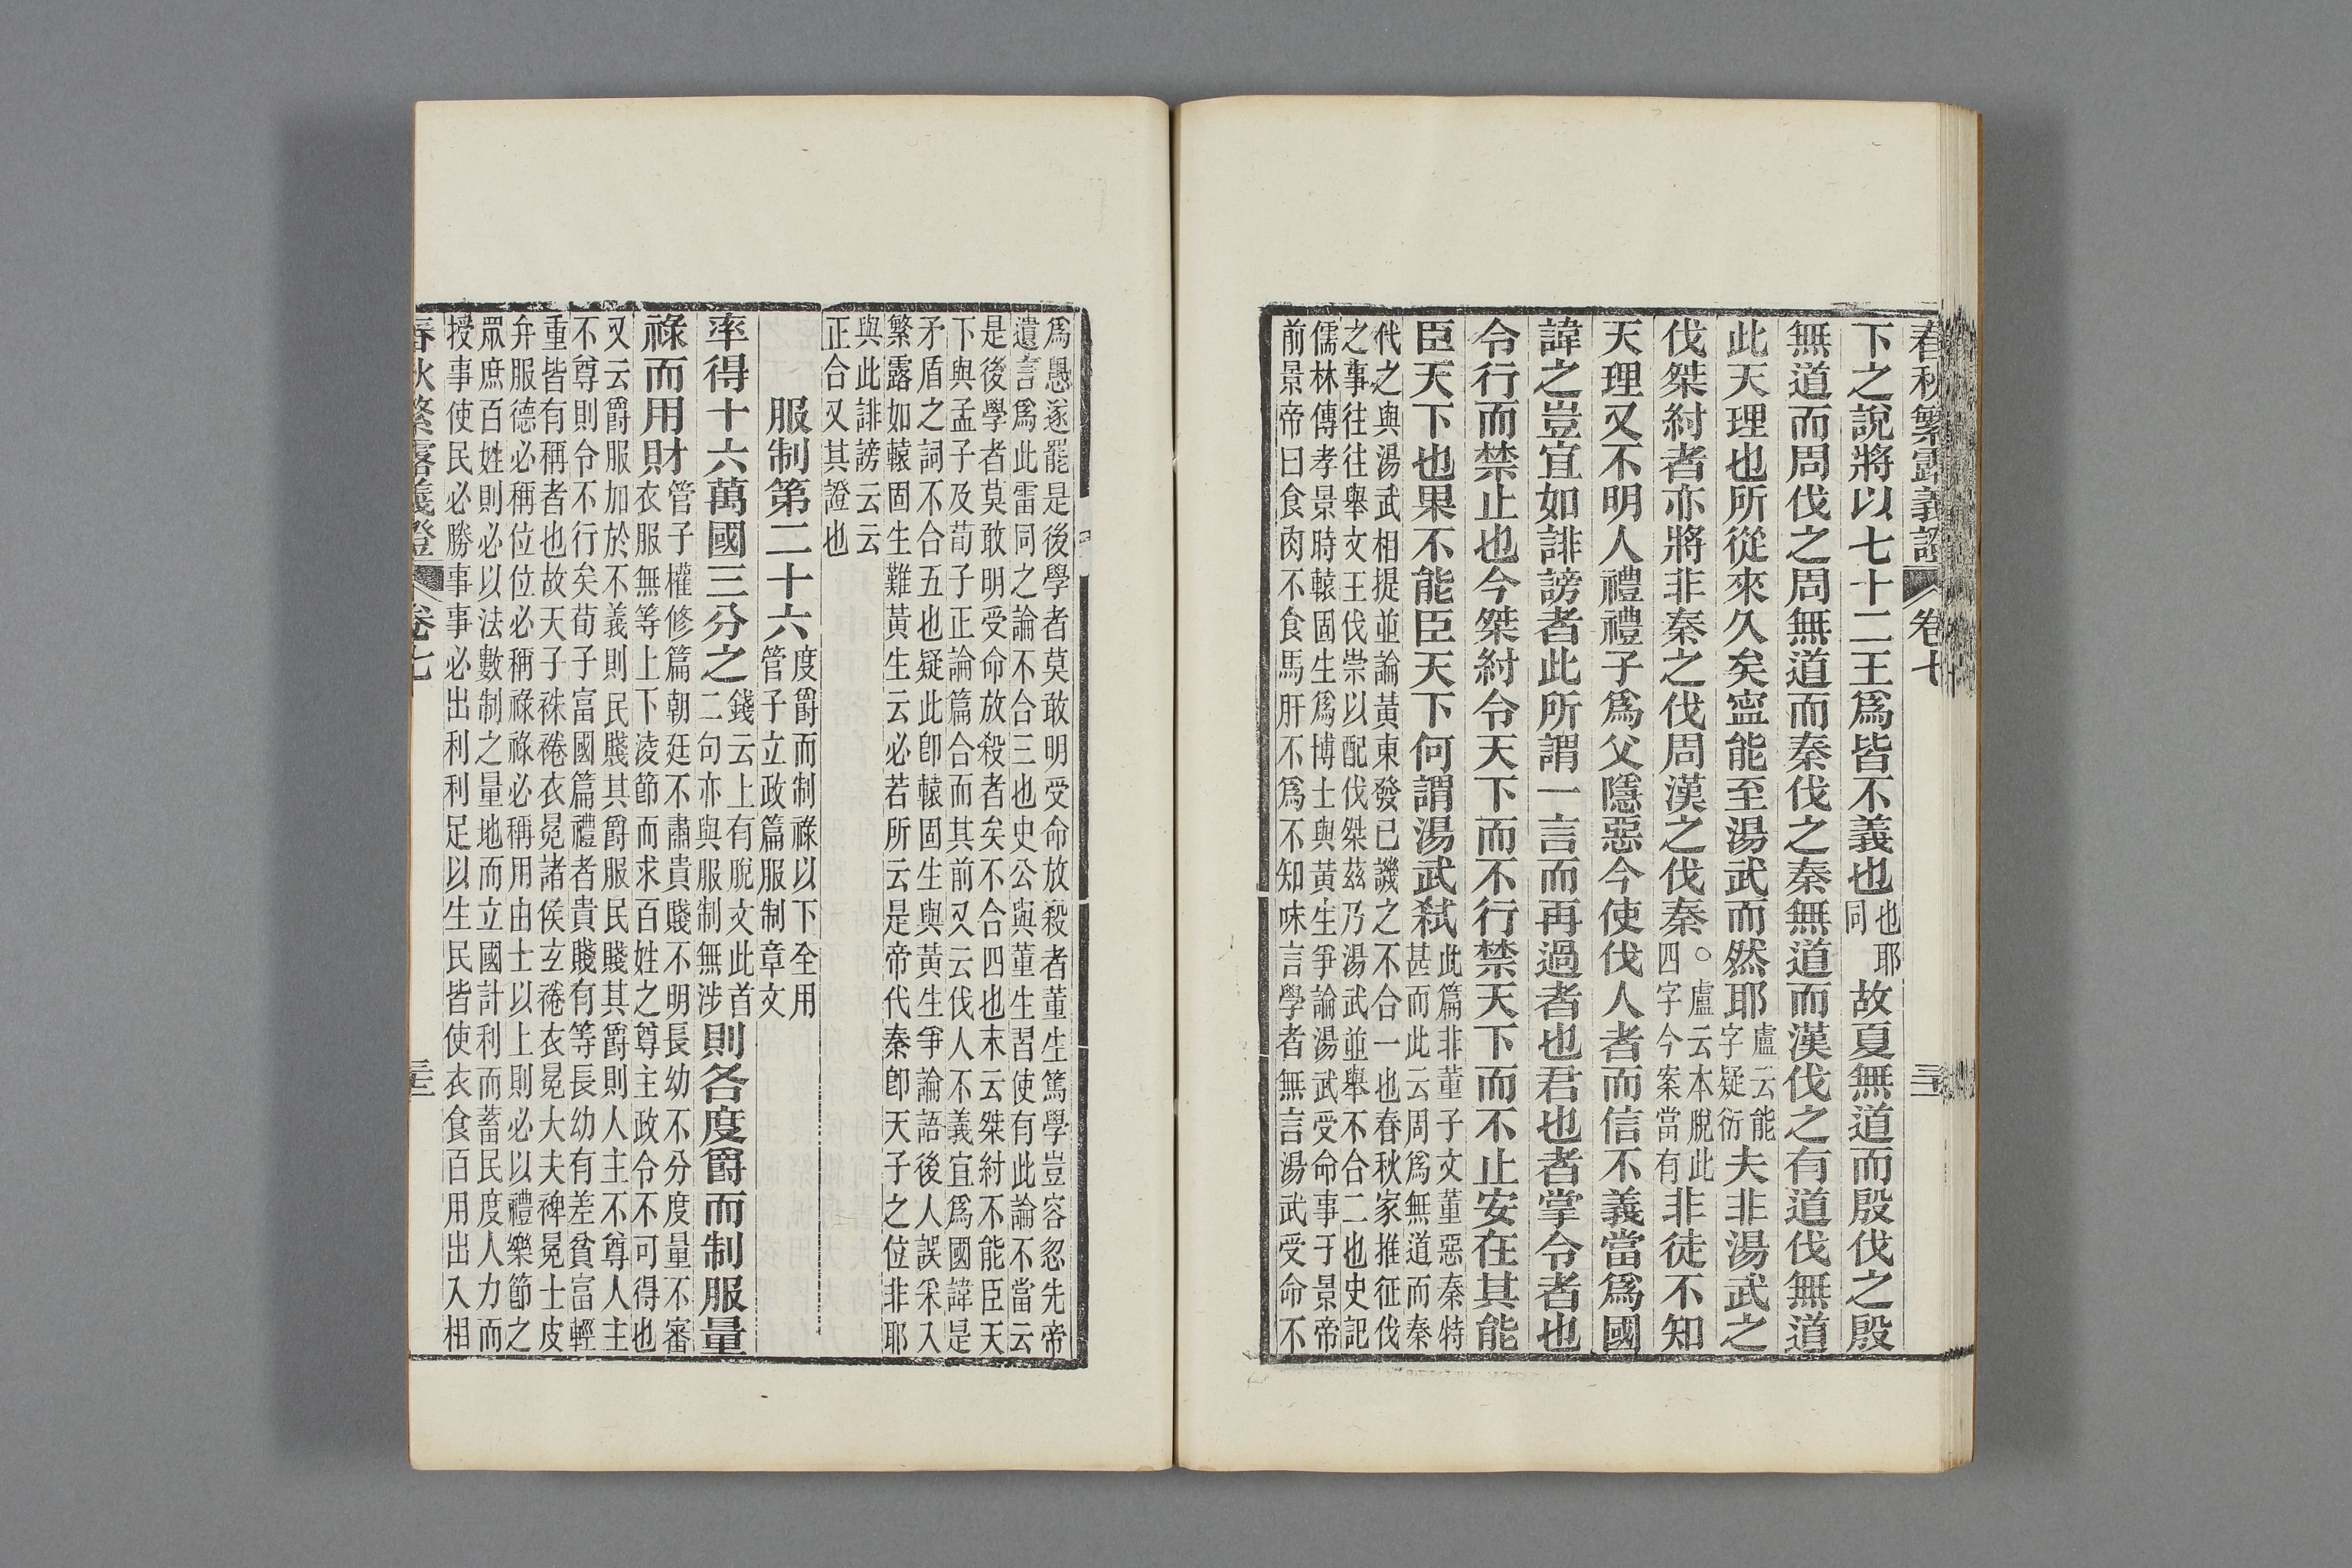 春秋繁露義證 卷七
下之說將以七十二王爲皆不義也也耶同故夏無道而殷伐之殷
無道而周伐之周無道而秦伐之秦無道而漢伐之有道伐無道
此天理也所從來久矣寍能至湯武而然耶盧云能字疑衍夫非湯武之
伐桀紂者亦將非秦之伐周漢之伐秦○盧云本脫此四字今案當有非徒不知
天理又不明人禮禮子爲父隱惡今使伐人者而信不義當爲國
諱之豈宜如誹謗者此所謂一言而再過者也君也者掌令者也
令行而禁止也今桀紂令天下而不行禁天下而不止安在其能
臣天下也果不能臣天下何謂湯武弒此篇非董子文董惡秦特甚而此云周爲無道而秦
代之與湯武相提並論黃東發已譏之不合一也春秋家推征伐
之事往往舉文王伐崇以配伐桀茲乃湯武並舉不合二也史記
儒林傳孝景時轅固生爲博士與黃生爭論湯武受命事于景帝
前景帝曰食肉不食馬肝不爲不知味言學者無言湯武受命不
爲愚遂罷是後學者莫敢明受命放殺者董生篤學豈容忽先帝
遺言爲此雷同之論不合三也史公與董生習使有此論不當云
是後學者莫敢明受命放殺者矣不合四也末云桀紂不能臣天
下與孟子及荀子正論篇合而其前又云伐人不義宜爲國諱是
矛盾之詞不合五也疑此卽轅固生與黃生爭論語後人誤采入
繁露如轅固生難黃生云必若所云是帝代秦卽天子之位非耶
與此誹謗云云
正合又其證也
服制第二十六度爵而制祿以下全用管子立政篇服制章文
率得十六萬國三分之錢云上有脫文此首二句亦與服制無涉則各度爵而制服量
祿而用財管子權修篇朝廷不肅貴賤不明長幼不分度量不審衣服無等上下淩節而求百姓之尊主政令不可得也
又云爵服加於不義則民賤其爵服民賤其爵則人主不尊人主
不尊則令不行矣荀子富國篇禮者貴賤有等長幼有差貧富輕
重皆有稱者也故天子袾裷衣冕諸侯玄裷衣冕大夫裨冕士皮
弁服德必稱位位必稱祿祿必稱用由士以上則必以禮樂節之
眾庶百姓則必以法數制之量地而立國計利而蓄民度人力而
授事使民必勝事事必出利利足以生民皆使衣食百用出入相
春秋繁露義證 卷七